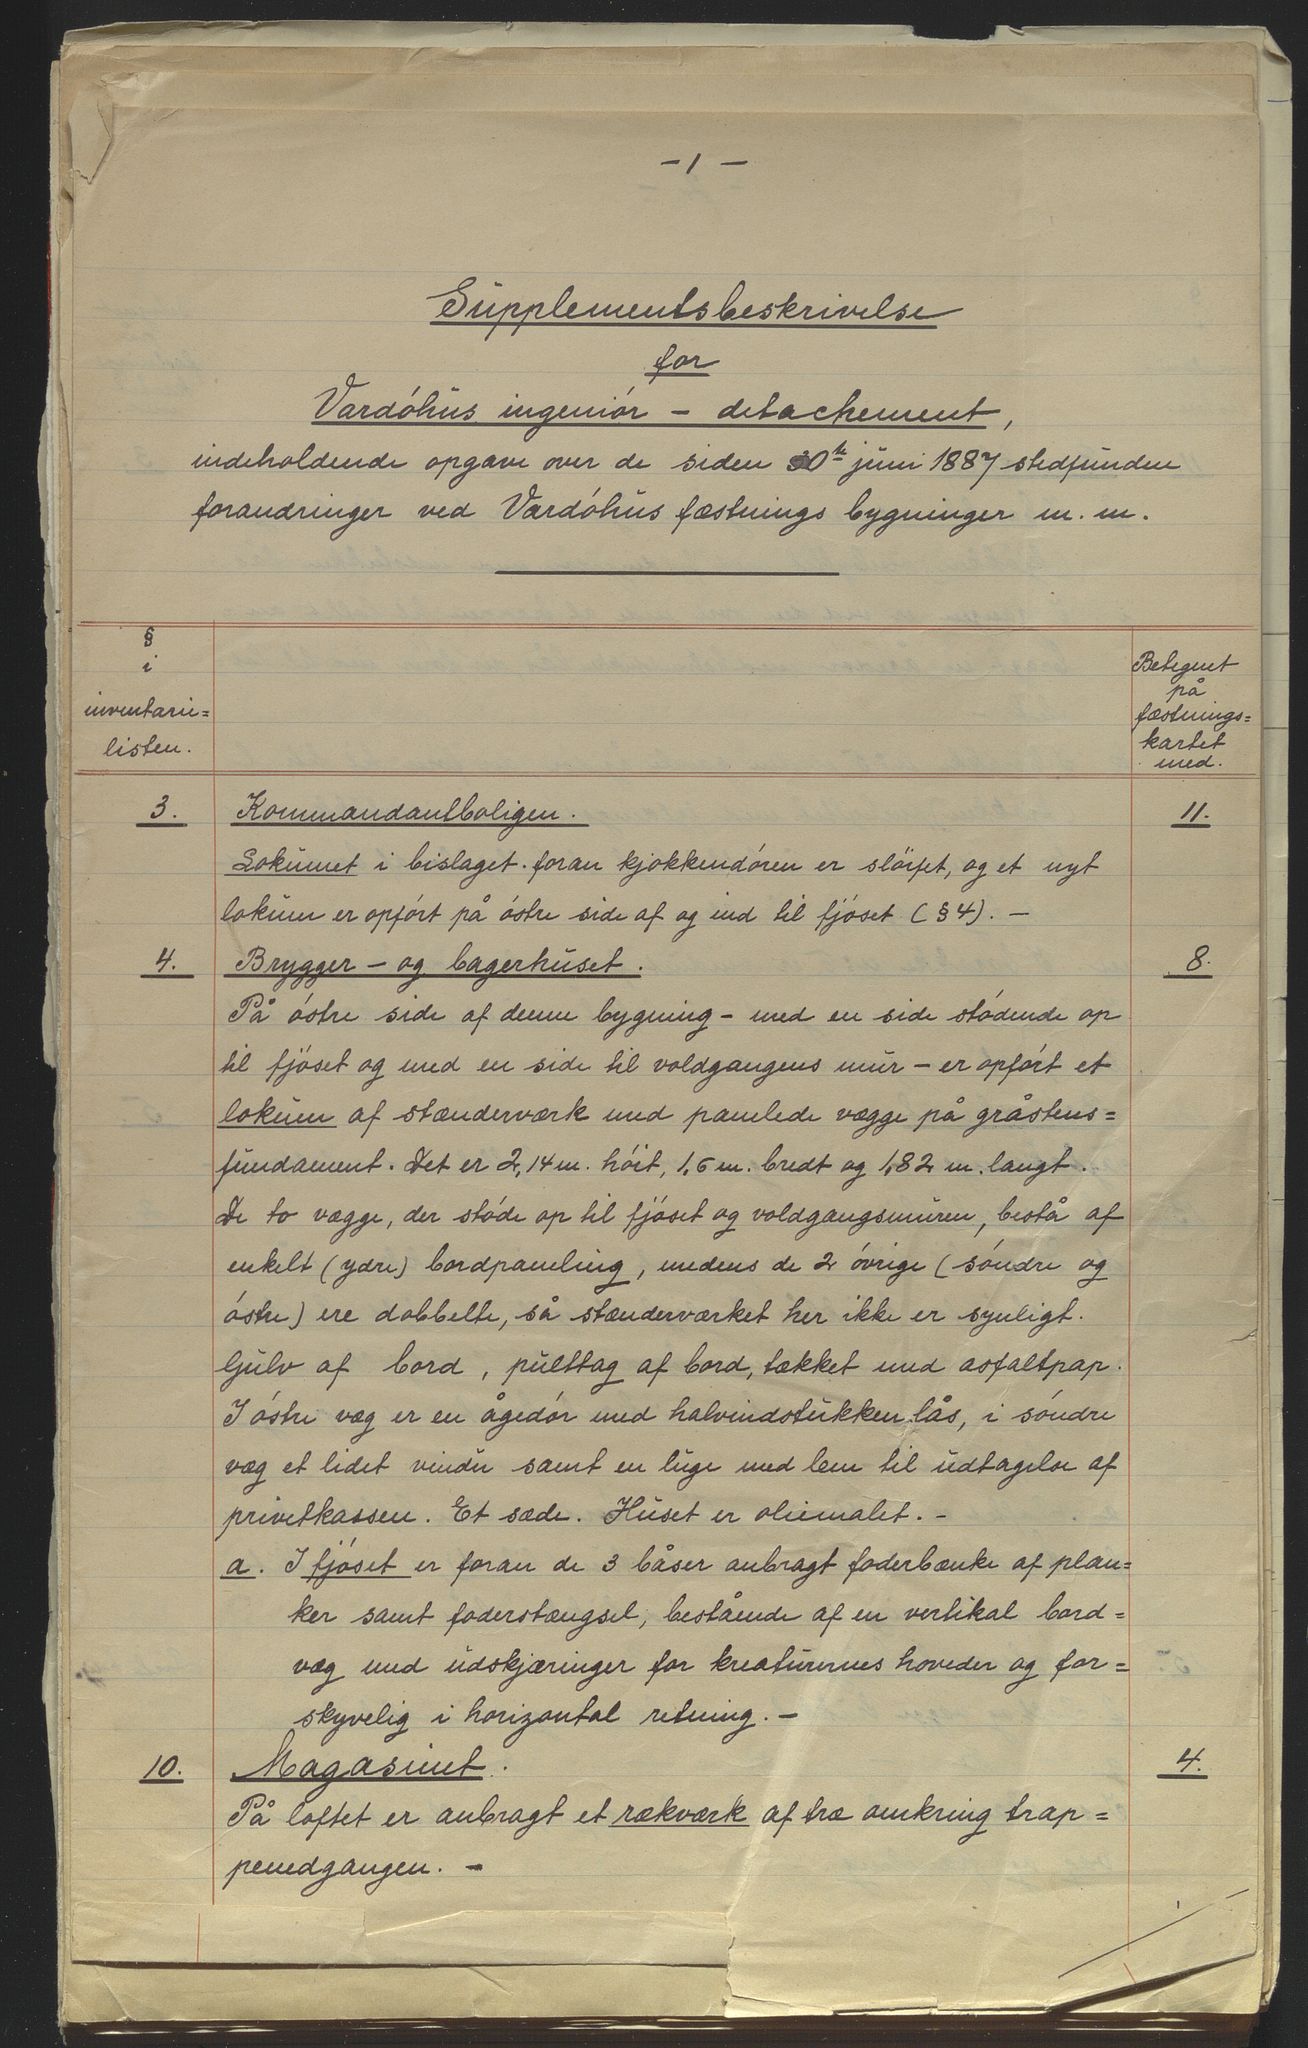 - 1 -
Supplementsbeskrivelse
for
Vardóhus ingeniór - detachement,
indeholdende opgave over de siden 30te juni 1887 stedfundne
forandringer ved Vardóhus fæstnings bygninger m. m.
§
i
inventarie=
listen.
Betegnet
på
fæstnings=
kartet
med.
3. Kommandantboligen. 11.
Lokumet i bislaget foran kjøkkendóren er slóifet, og et nyt
lokum er opfórt på óstre side af og ind til fjóset (§4). -
4. Brygger - og bagerhuset. 8.
På óstre side af denne bygning - med en side stódende op
til fjóset og med en side til voldgangens mur - er opfórt et
lokum af stænderværk med panelede vægge på gråstens=
fundament. Det er 2,14 m. hóit, 1,6 m. bredt og 1,82 m. langt.
De to vægge, der stóde op til fjóset og voldgangsmuren, bestå af
enkelt (ydre) bordpaneling, medens de 2 óvrige (sóndre og
óstre) ere dobbelte, så stænderværket her ikke er synligt.
Gulv af bord, pulttag af bord, tækket med asfaltpap.
I óstre væg er en ågedór med halvindstukken lås, i sóndre
væg et lidet vindu samt en luge med lem til udtagelse af
privetkassen. Et sæde. Huset er oliemalet. -
a. I fjóset er foran de 3 båser anbragt foderbænke af plan=
ker samt foderstængsel, bestående af en vertikal bord=
væg med udskjæringer for kreaturernes hoveder og for=
skyvelig i horizontal retning. -
10. Magasinet. 4.
På loftet er anbragt et rækværk af træ omkring trap=
penedgangen. -